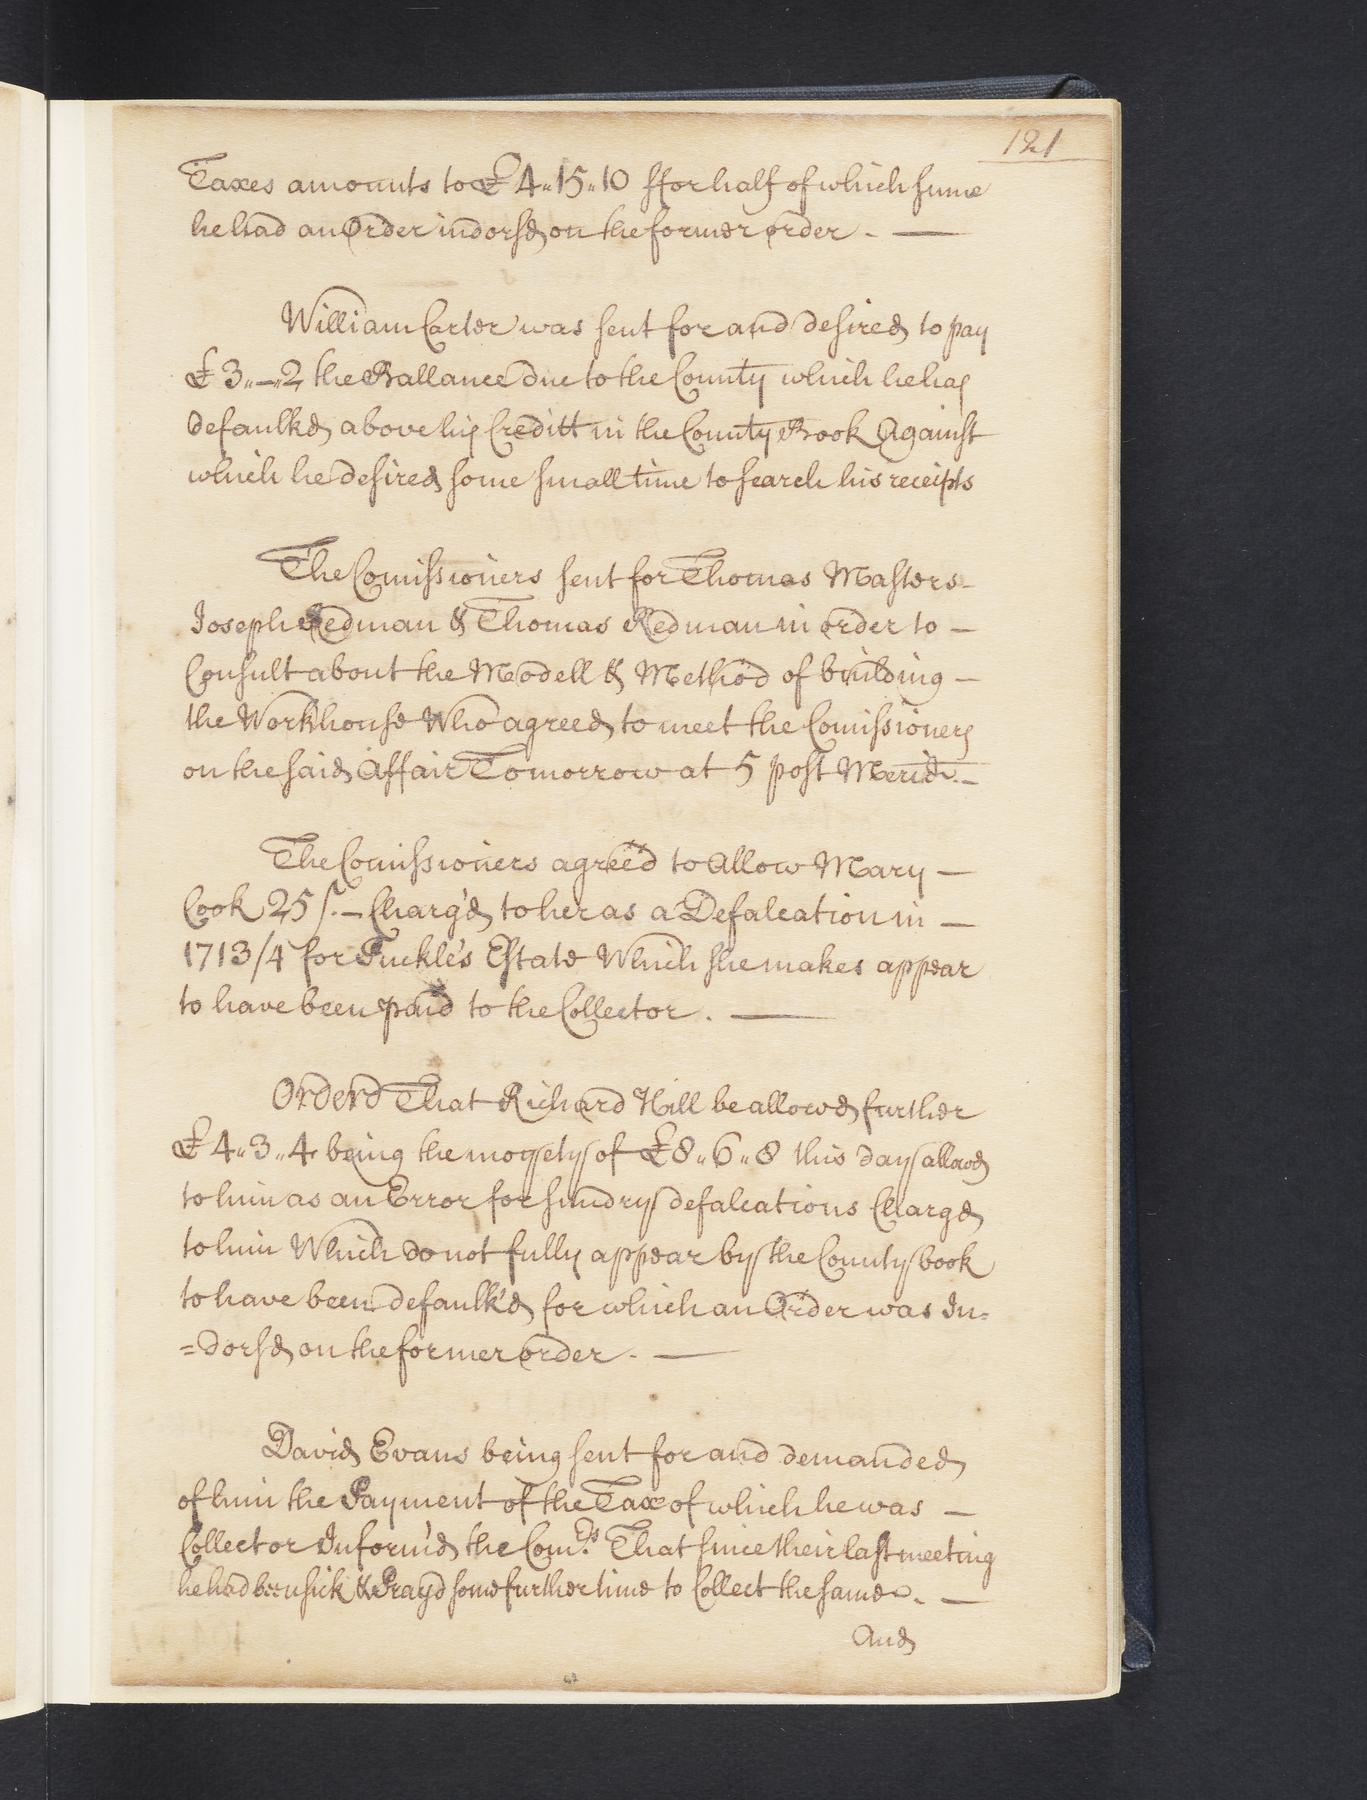 121
Taxes amounts to £4„15„10 ffor half of which sume
he had an Order indorsed on the former order. —
William Carter was sent for and desired to pay
£3„—„2 the Ballance due to the County which he has
defaulked above his Creditt in the County Book Against
which he desired some small time to search his receipts
The Comissioners sent for Thomas Masters—
Joseph Redman & Thomas Redman in order to —
Consult about the Modell & Method of building —
the Workhouse Who agreed to meet the Comissioners
on the said Affair Tomorrow at 5 post Merid.—
The Comissioners agree'd to Allow Mary —
Cook 25/.— Charg'd to her as a Defalcation in —
1713/4 for Tuckle's Estate Which she makes appear
to have been paid to the Collector. —
Orderd That Richard Hill be allowed further
£4„3„4 being the moyety of £8„6„8 this day allowd
to him as an Error for sundry defalcations Chargd
to him Which do not fully appear by the County book
to have been defaulk'd for which an Order was In=
=dorsed on the former order. —
David Evans being sent for and demanded
of him the Payment of the Tax of which he was —
Collector Inform'd the Com.rs That since their last meeting
he had been sick & Prayd some further time to Collect the same. —
And